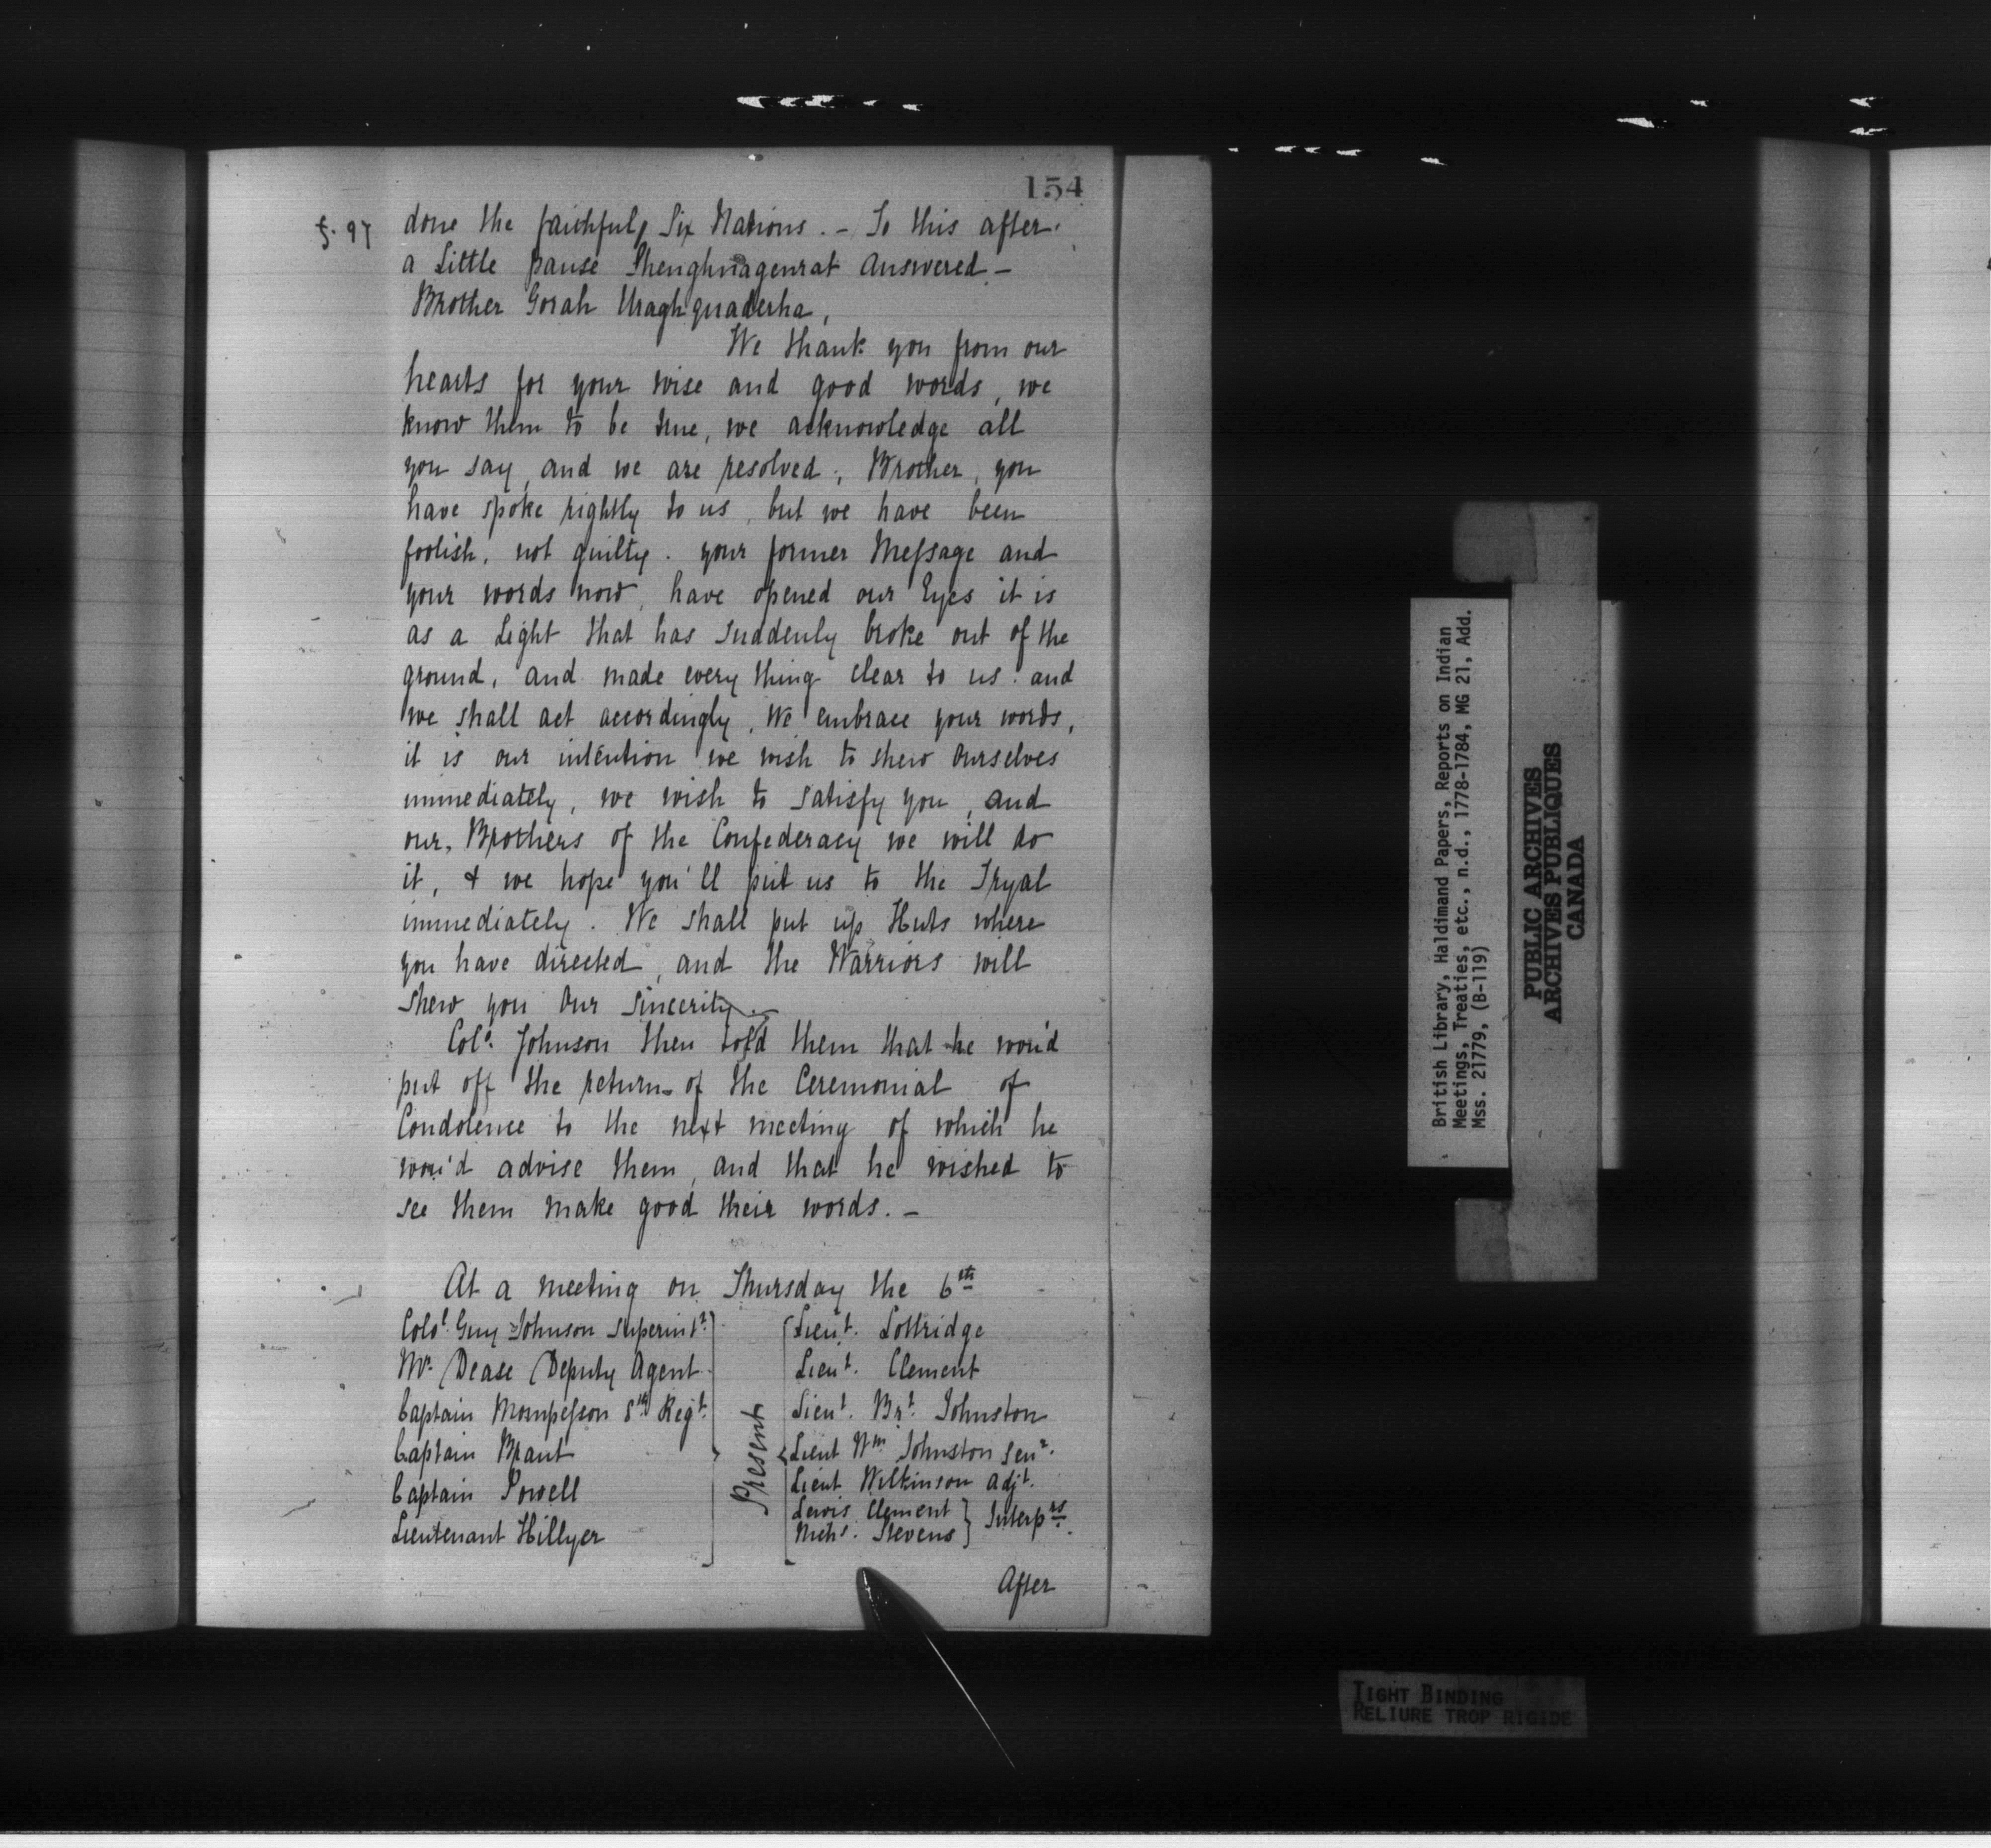 154
f. 97
done the faithful Six Nations. - To this after
a Little pause Shenghnagenrat answered -
Brother Gorah Uraghquaderha,
We thank you from our
hearts for your wise and good words, we
know them to be true, we acknowledge all
you say, and we are resolved; Brother, you
have spoke rightly to us, but we have been
foolish, not guilty. your former Message and
your words now, have opened our Eyes it is
as a Light that has suddenly broke out of the
ground, and made every thing clear to us. and
we shall act accordingly, We embrace your words,
it is our intention we wish to shew ourselves
immediately, we wish to satisfy you, and
our, Brothers of the Confederacy we will do
it, & we hope you'll put us to the Tryal
immediately. We shall put up Huts where
you have directed, and the Warriors will
shew you our sincerity. -
Colo. Johnson then told them that he wou'd
put off the return of the Ceremonial of
Condolence to the next meeting of which he
wou'd advise them, and that he wished to
see them make good their words. -
At a meeting on Thursday the 6th
Colol. Guy Johnson Superintt.
Mr. Dease Deputy Agent
Captain Mompesson 8th Regt.
Captain Brant
Captain Powell
Lieutenant Hillyer
Present
Lieut. Lottridge
Lieut. Clement
Lieut. Brt. Johnston
Lieut Wm Johnston Senr.
Lieut Wilkinson adjt.
Lewis Clement
Nichs. Stevens
Interprs.
After
British Library, Haldimand Papers, Reports on Indian
Meetings, Treaties, etc., n.d., 1778-1784, MG 21, Add.
Mss. 21779, (B-119)
PUBLIC ARCHIVES
ARCHIVES PUBLIQUES
CANADA
TIGHT BINDING
RELIURE TROP RIGIDE